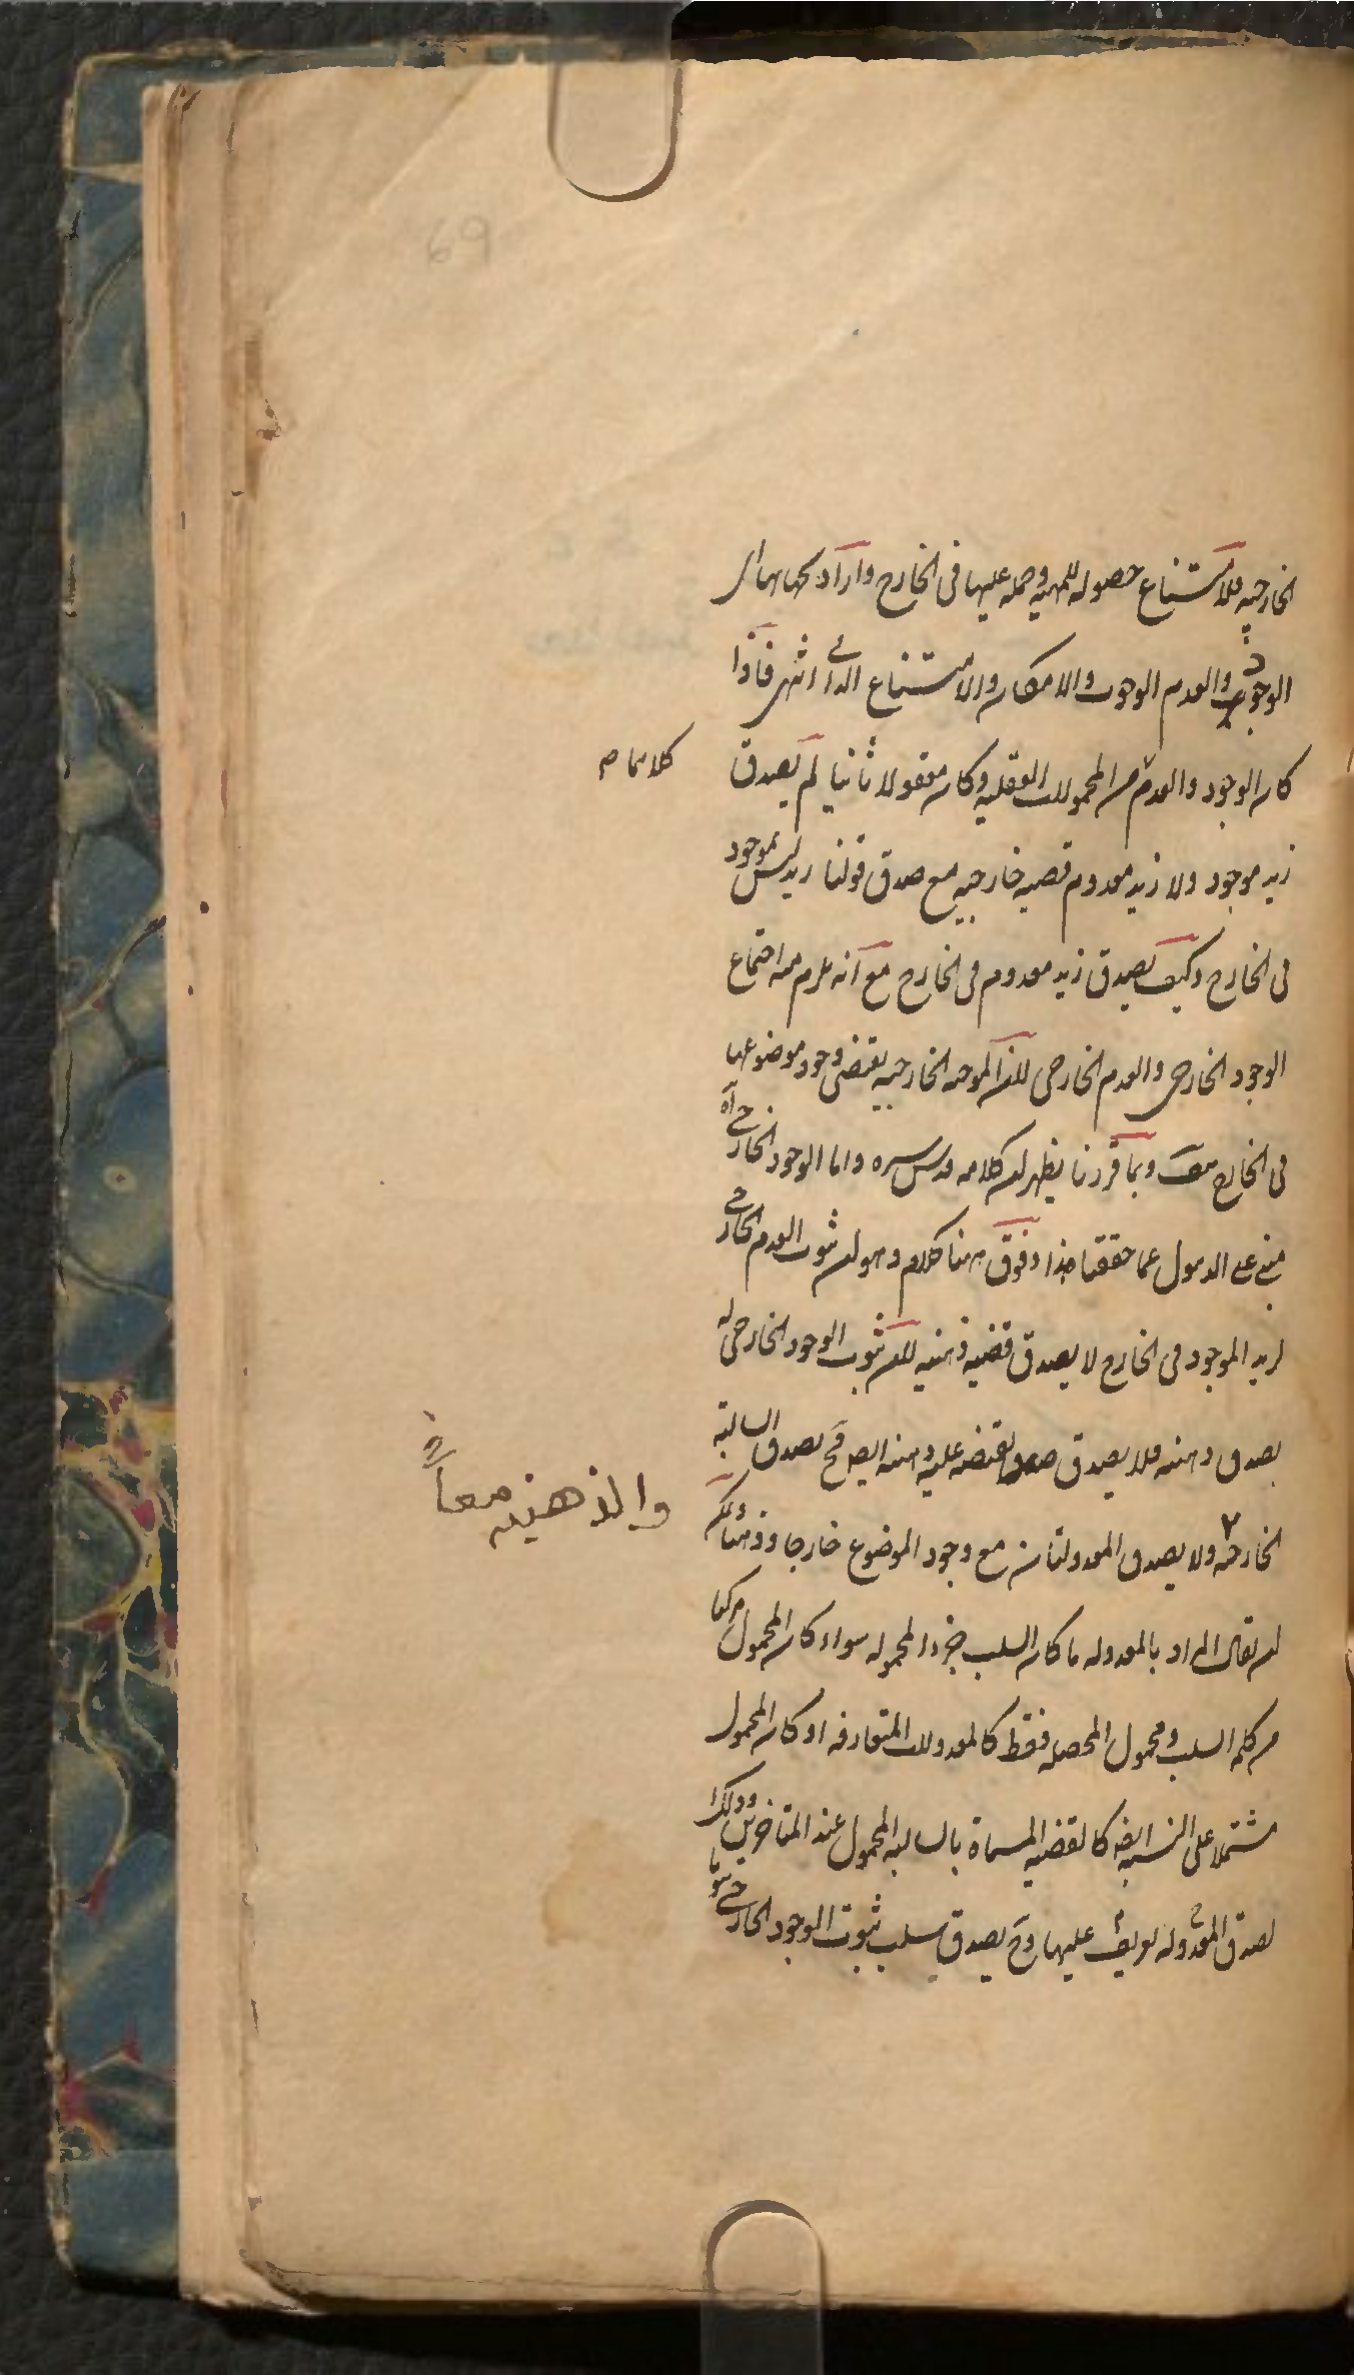 69
الخارجيه للامتناع حصوله للمهيه وحمله عليها فى الخارج واراد
الوجود والعدم الوجوب والامكان والامتناع انتهى فاذا
كان الوجود والعدم من المحمولات العقليه وكان معقولا ثانيا لم يصدق
كلاهما
زيد موجود ولا زيد معدوم قضيه خارجيه مع صدق قولنا زيد ليس بموجود
فى الخارج وكيف يصدق زيد معدوم فى الخارج مع انه يلزم منه اجتماع
الوجود الخارجى والعدم الخارجى لان الموجبه الخارجيه يقتضى وجود موضوعها
فى الخارج وبما قررنا يظهر ان كلامه قدس سره واما الوجود الخارجى آه
مبنى على الذهول عما حققنا هذا وفوق ههنا كلام وهو ان ثبوت العدم الخارجى
لزيد الموجود فى الخارج لا يصدق قضيه ذهنيه لان ثبوت الوجود الخارجى له
يصدق ذهنيه فلا يصدق نقيضه عليه ذهنيه ايضا فح يصدق السالبة
الخارجيه ولا يصدق المعدولتان مع وجود الموضوع خارجا وذهنا
والذهنيه معاً
ان يقال المراد بالمعدوله ما كان السلب جزء المحموله سواء كان المحمول مركبا
من كلمه السلب ومحمول المحصله فقط كالمعدولات المتعارفه او كان المحمول
مشتملا على النسبه ايضا كالقضيه المسماة بالسالبه المحمول عند المتاخرين
لصدق المعدوله عليها وح يصدق سلب ثبوت الوجود الخارجى